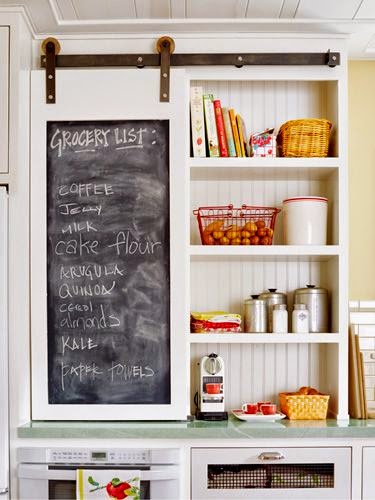 GROCERY LIST:
COFFEE
JELLY
MILK
cake flour
ARUGULA
QUINOA
CEREAL
almonds
KALE
PAPER TOWELS